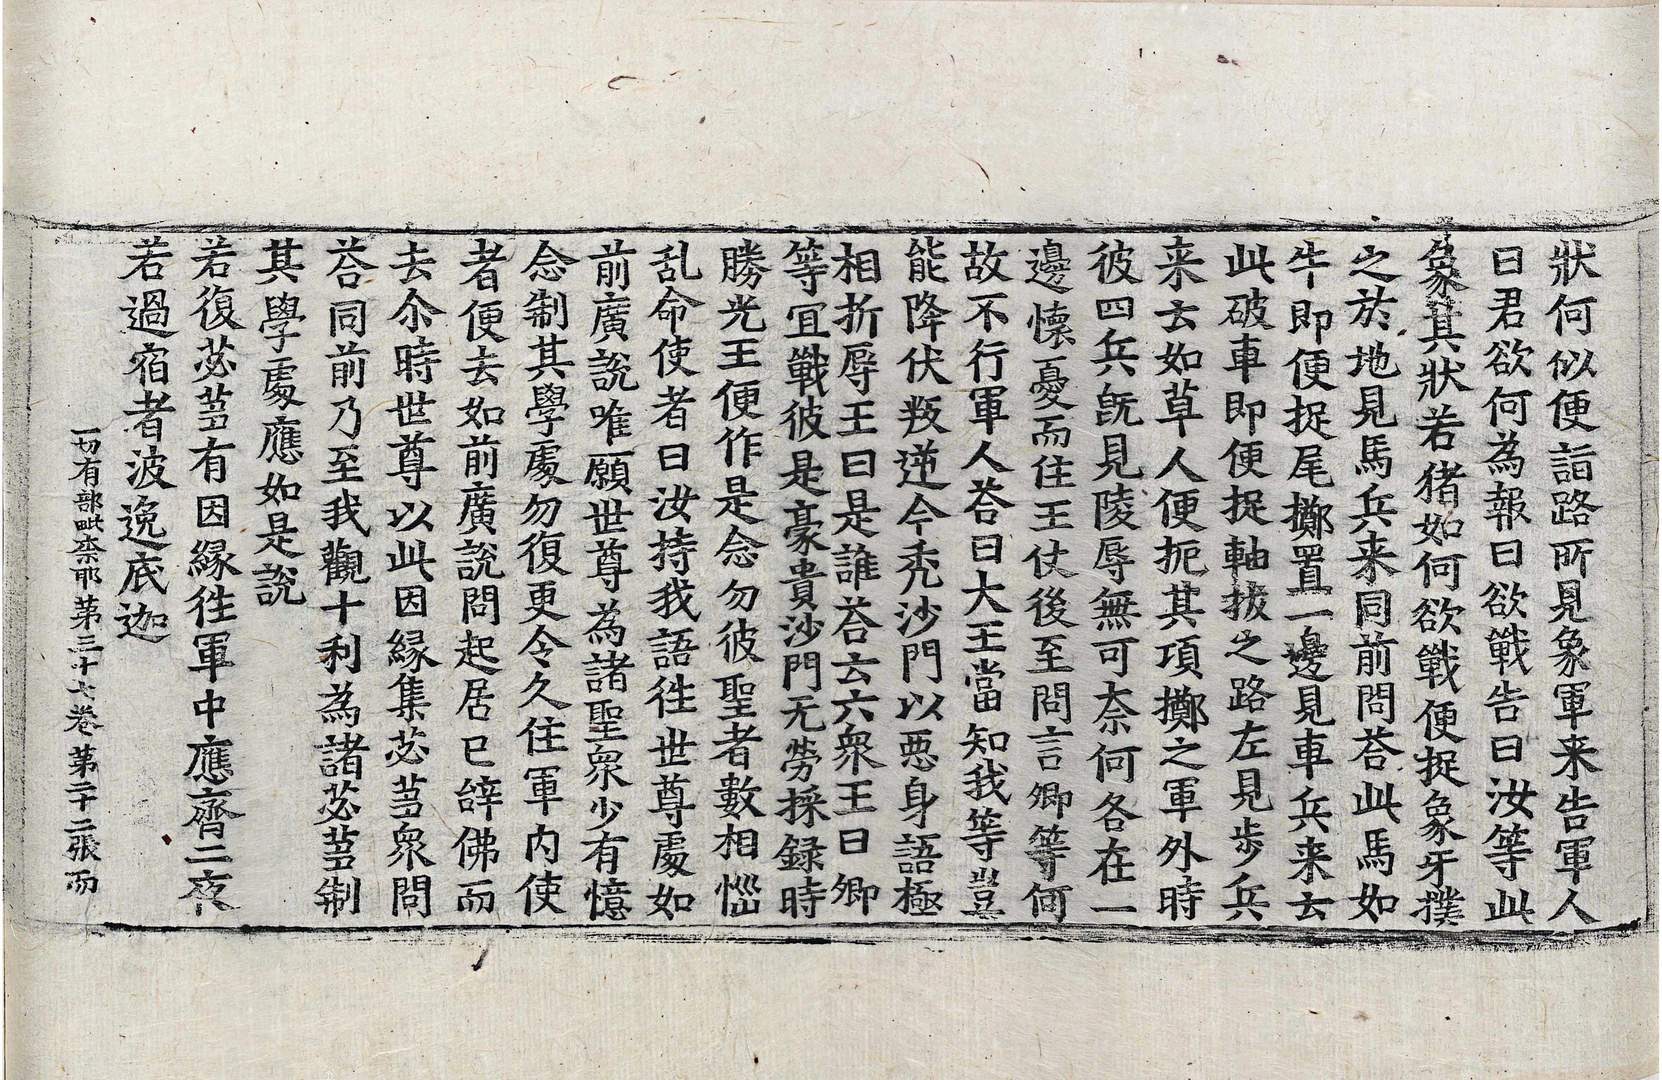 狀何似便詣路所見象軍来告軍人
曰君欲何為報曰欲戰告曰汝等此
象其狀若猪如何欲戰便捉象牙撲
之於地見馬兵来同前問荅此馬如
牛即便捉尾擲置一邊見車兵来去
此破車即便捉軸拔之路左見步兵
来去如草人便扼其項擲之軍外時
彼四兵旣見陵辱無可奈何各在一
邊懷憂而住王仗後至問言卿等何
故不行軍人荅曰大王當知我等豈
能降伏叛逆今禿沙門以惡身語極
相折辱王曰是誰荅去六衆王曰卿
等宜戰彼是豪貴沙門无勞採録時
勝光王便作是念勿彼聖者數相惱
乱命使者曰汝持我語徃世尊處如
前廣說唯願世尊為諸聖衆少有憶
念制其學處勿復更令久住軍内使
者便去如前廣說問起居已辝佛而
去尒時世尊以此因緣集苾芻衆問
荅同前乃至我觀十利為諸苾芻制
其學處應如是說
若復苾芻有因緣徃軍中應齊二夜
若過宿者波逸底迦
一切有部毗柰耶第三十七卷 第二十二張 而